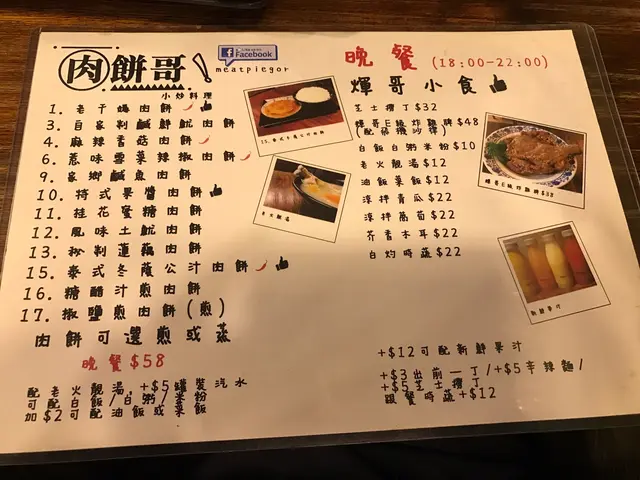 肉餅哥!
Facebook
meatpiegor
小炒料理
1. 老干媽肉餅
3. 自家制鹹鮮魷肉餅
4. 麻辣香菇肉餅
6. 惹味雲菜辣椒肉餅
9. 家鄉鹹魚肉餅
10. 特式果醬肉餅
11. 桂花蜜糖肉餅
12. 風味土魷肉餅
13. 秘制蓮藕肉餅
15. 泰式冬蔭公汁肉餅
16. 糖醋汁煎肉餅
17. 椒鹽煎肉餅(煎)
肉餅可選煎或蒸
晚餐$58
配老火靚湯,+$5罐裝汽水
可配白飯/白粥/米粉
加$2可配油飯或菜飯
晚餐(18:00-22:00)
煇哥小食
芝士獲丁$32
煇哥E級炸雞髀$48
白飯白粥米粉$10
老火靚湯$12
油飯菜飯$12
涼拌青瓜$22
涼拌蘿蔔$22
芥香木耳$22
白灼時蔬$22
老火靚湯
煇哥E級炸雞髀$38
新鮮果汁
+$12可配新鮮果汁
+$3出前一丁/+$5辛辣麵/
+$5芝士獲丁
跟餐時蔬+$12